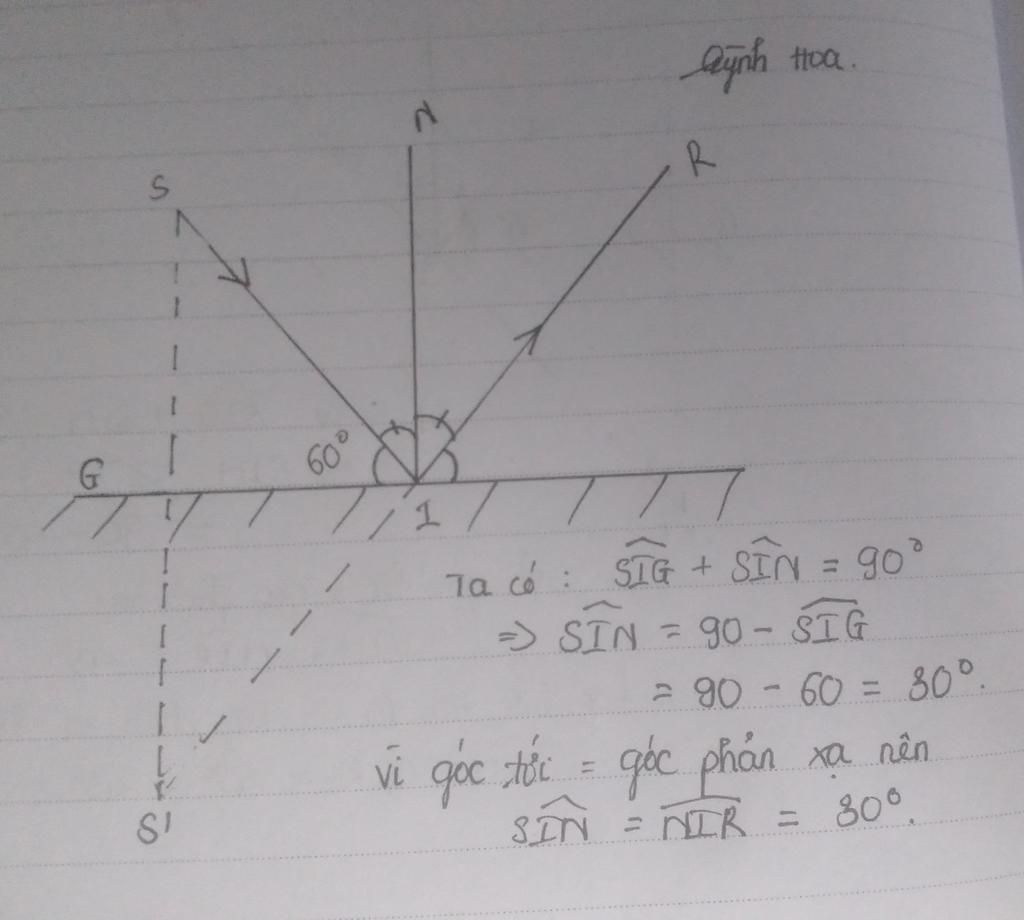 Quỳnh Hoa.
N
S
R
60°
G
I
Ta có : SIG + SIN = 90°
=> SIN = 90 - SIG
= 90 - 60 = 30°.
vì góc tới = góc phản xạ nên
SIN = NIR = 30°.
S'